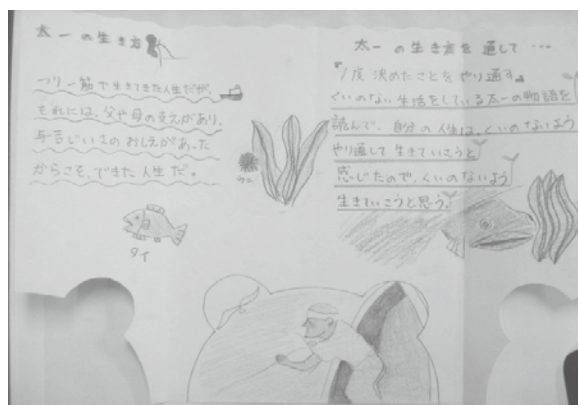 太一の生き方
つり一筋で生きてきた人生だが、
それには、父や母の支えがあり、
与吉じいさのおしえがあった
からこそ、できた人生だ。
タイ
ウニ
太一の生き方を通して…
『1度決めたことをやり通す。』
くいのない生活をしている太一の物語を
読んで、自分の人生は、くいのないよう
やり通して生きていこうと
感じたので、くいのないよう
生きていこうと思う。